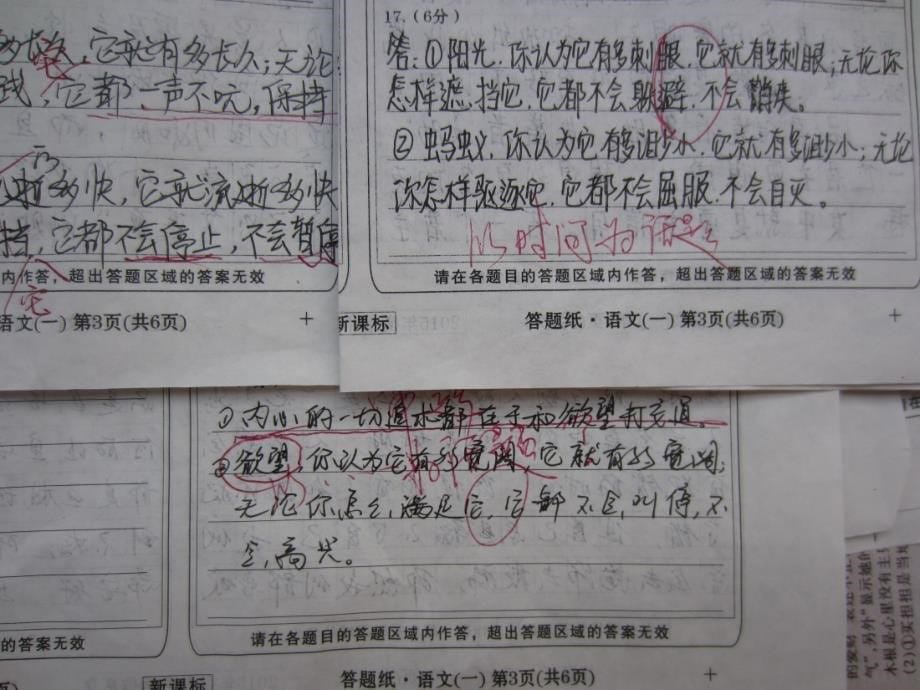 多长久，它就有多长久；无论
它都一声不吭，保持
逝多快，它就流逝多快
挡，它都不会停止，不会暂停
内作答，超出答题区域的答案无效
语文(一) 第3页(共6页)
17.(6分)
答：①阳光，你认为它有多刺眼，它就有多刺眼；无论你
怎样遮挡它，它都不会躲避，不会消失。
②蚂蚁，你认为它有多渺小，它就有多渺小；无论
你怎样驱逐它，它都不会屈服，不会自灭。
以时间为话题
请在各题目的答题区域内作答，超出答题区域的答案无效
新课标
答题纸·语文(一) 第3页(共6页)
①内心的一切追求都在于和欲望打交道。
②欲望，你认为它有多宽阔，它就有多宽阔；
无论你怎么满足它，它都不会叫停，不
会高兴。
请在各题目的答题区域内作答，超出答题区域的答案无效
的答案无效
新课标
答题纸·语文(一) 第3页(共6页)
气”，另外“显示她的
木根是心里没有主
(2)①买相相是当